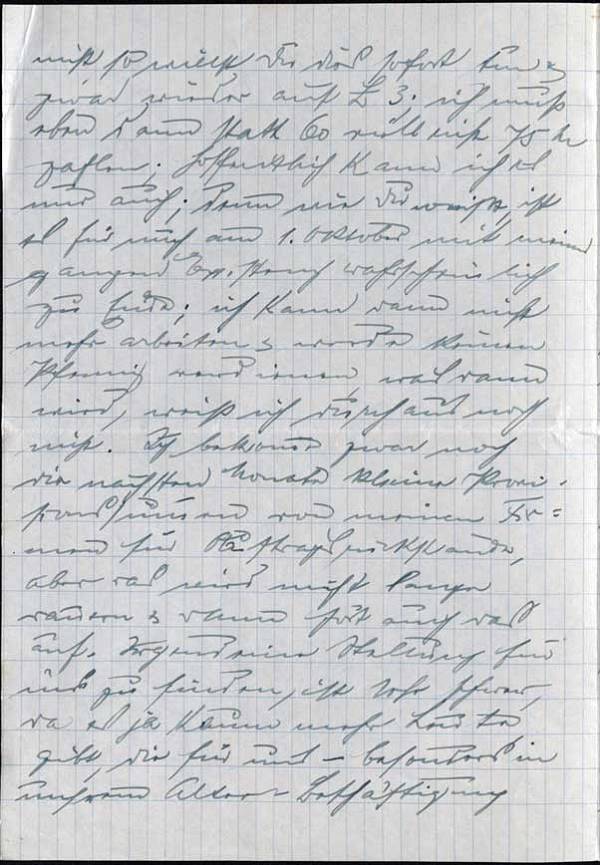 nicht so willst Du dies sofort tun &
zwar wieder auf L 3; ich muß
eben dann statt 60 vielleicht 75 M
zahlen; hoffentlich kann ich es
nur auch; denn wie Du weißt, ist
es für mich am 1. Oktober mit meiner
ganzen Existenz wahrscheinlich
zu Ende; ich kann dann nicht
mehr arbeiten & werde keinen
Pfennig verdienen, was dann
wird, weiß ich durchaus noch
nicht. Ich bekomme zwar noch
die nächsten Monate kleine Provi-
sionssummen von meinen Fir=
men für Auftragsrückstände,
aber das wird nicht lange
dauern & dann hört auch das
auf. Irgend eine Stellung für
uns zu finden, ist sehr schwer,
da es ja kaum mehr Leute
gibt, die für uns – besonders in
unserem Alter – Beschäftigung